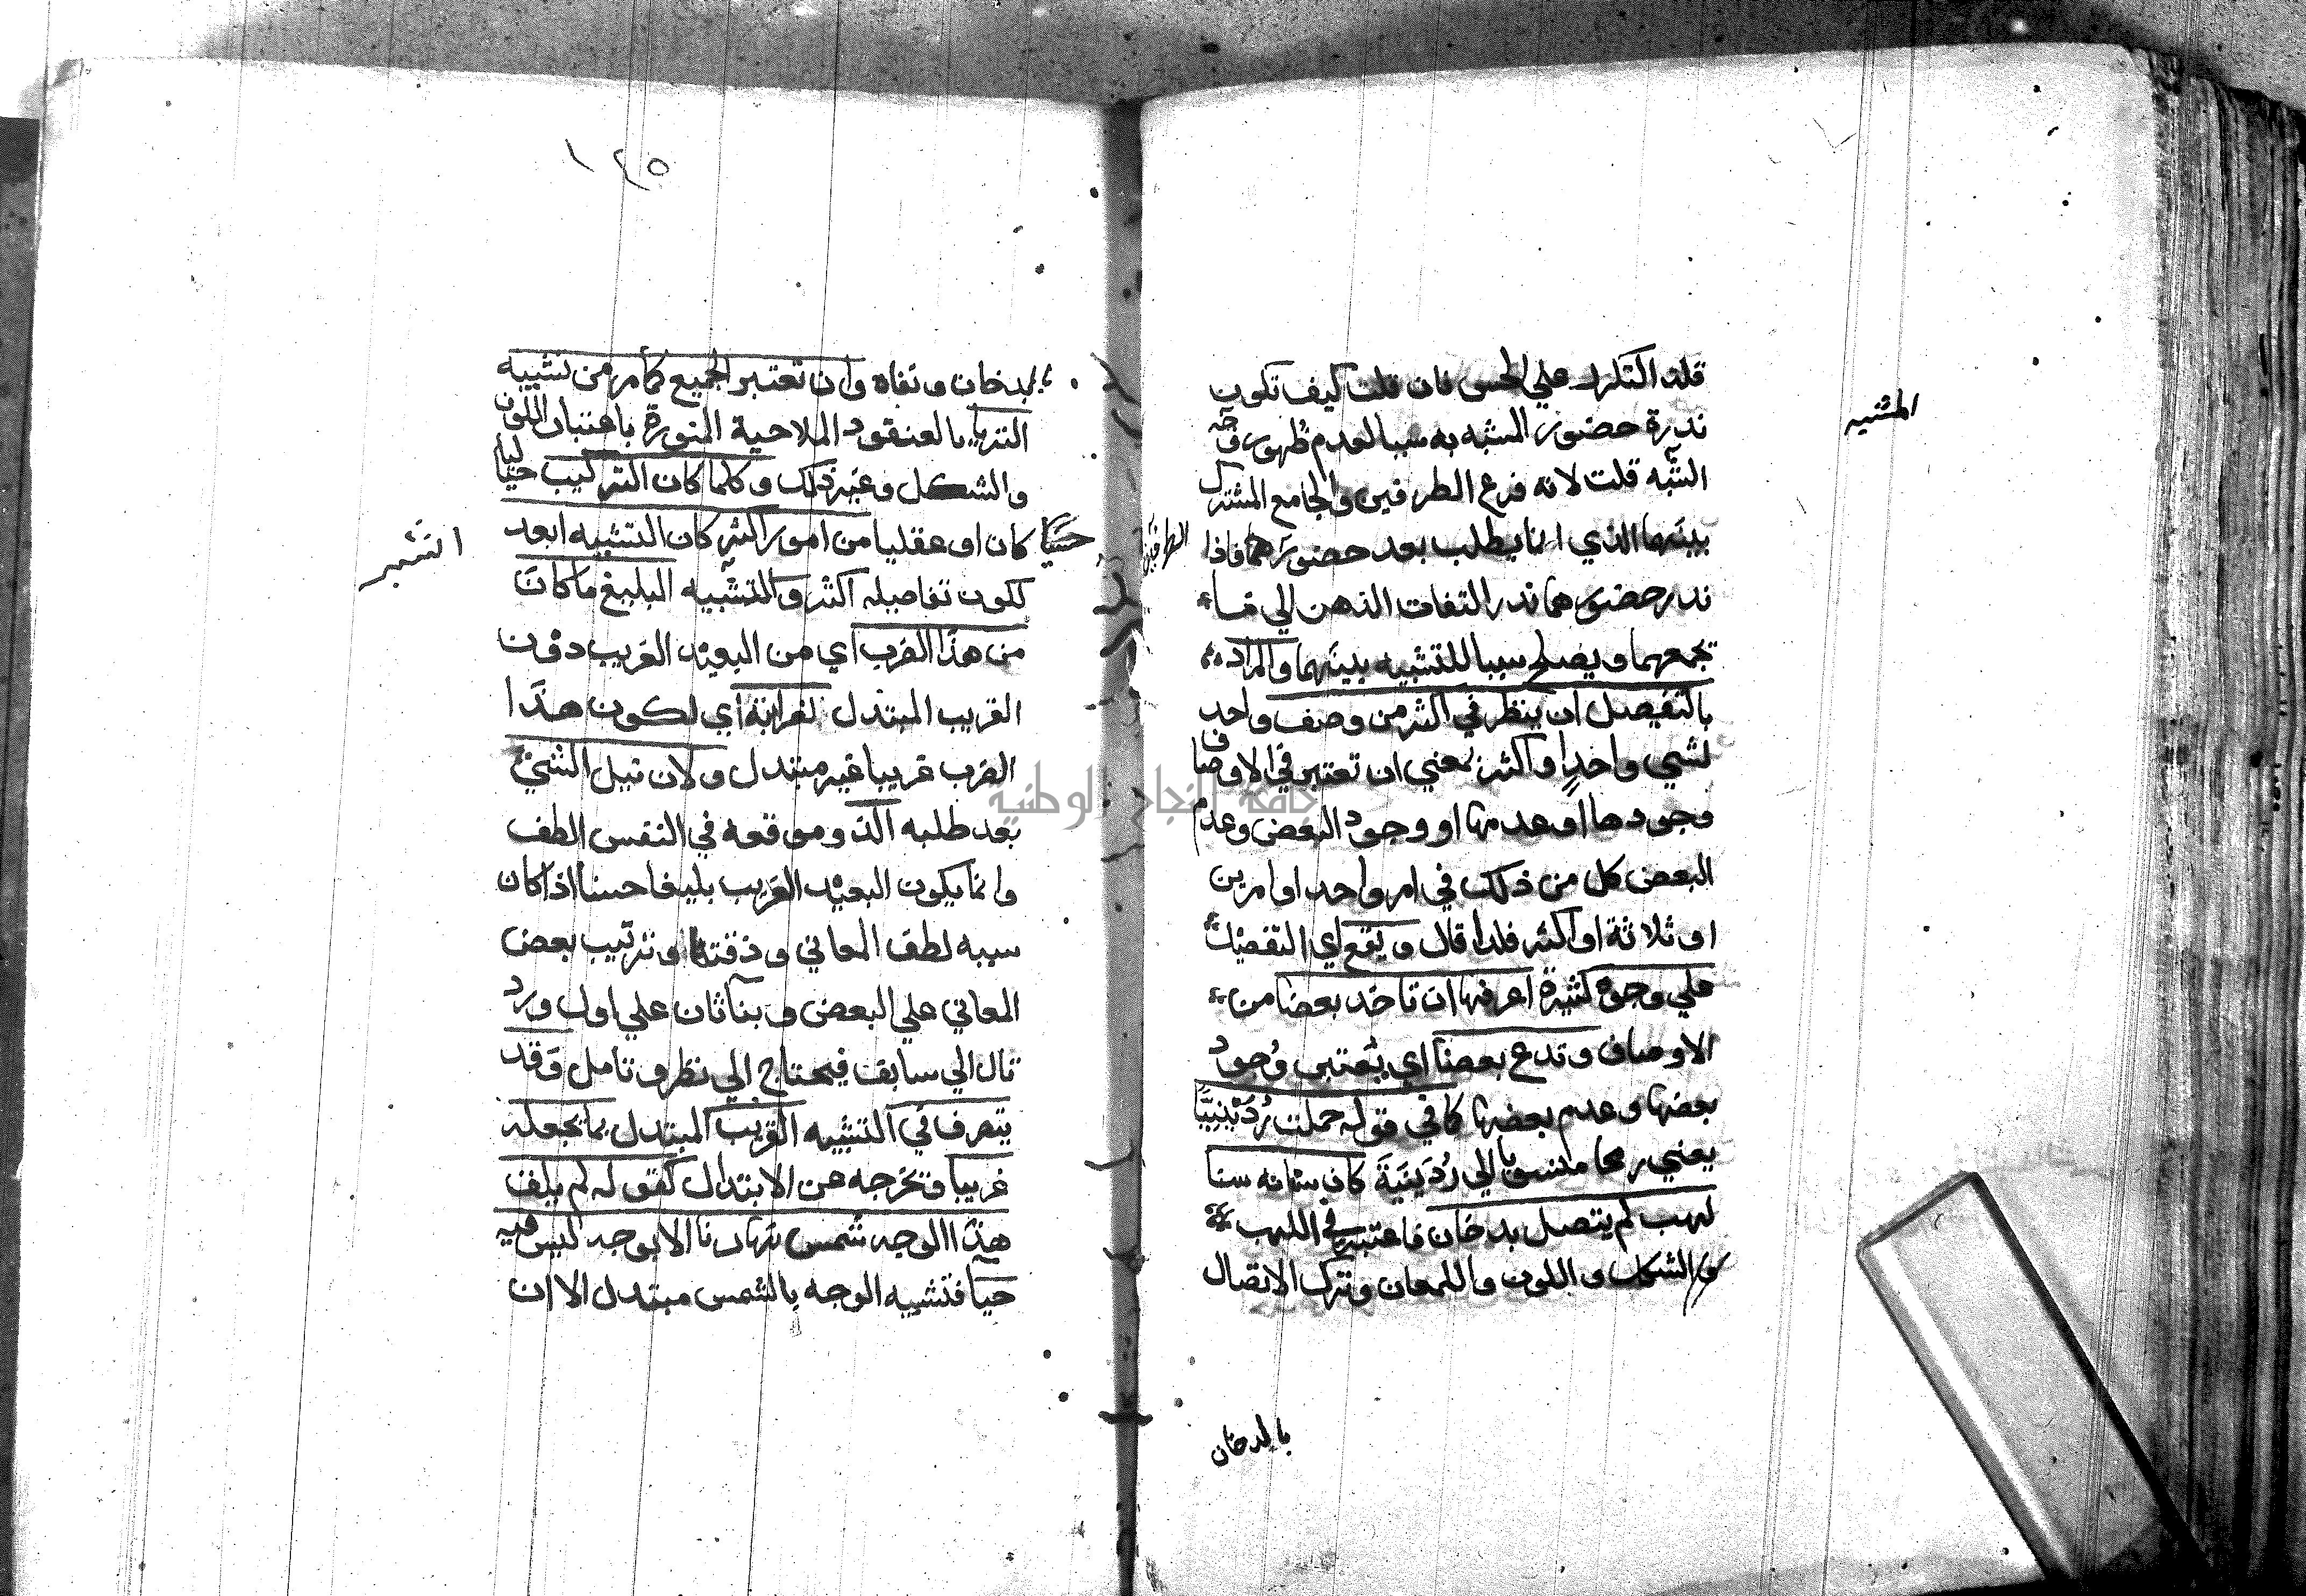 قلة التكرار علي الحس فان قلت كيف تكون
ندرة حضور المشبه به سببا لعدم ظهور وجه
التشبه قلت لانه فرع الطرفين والجامع المشترك
بينهما الذي انما يطلب بعد حضورهما فاذا
ندر حضورهما ندر التفات الذهن الي ما
يجمعهما ويصلح سببا للتشبيه بينهما والمراد
بالتفصيل ان ينظر في اكثر من وصف واحد
لشي واحد او اكثر بمعني ان تعتبر في الاوصاف
وجودها او عدمها او وجود البعض وعدم
البعض كل من ذلك في امر واحد او امرين
او ثلاثة او اكثر فلذا قال ويقع اي التفصيل
علي وجوه كثيرة اعرفها ان تاخذ بعضا من
الاوصاف وتدع بعضا اي يعتبر وجود
بعضها وعدم بعضها كما في قوله حملت رُدَيْنِيًّا
يعني رمحا منسوبا الي رُدَينَيَة كان سنانه سنا
لهب لم يتصل بدخان فاعتبر في اللهب
والشكل واللون واللمعان وترك الاتصال
بالدخان
المشبه
الطرفين
١٤٥
بدخان ونفاه وان تعتبر الجميع كما مر من تشبيه
الثريا بالعنقود الملاحية المنورة باعتبار اللون
والشكل وغير ذلك وكلما كان التركيب خياليا
حسيا كان او عقليا من امور اكثر كان التشبيه ابعد
لكون تفاصيله اكثر والتشبيه البليغ ما كان
من هذا الضرب اي من البعيد الغريب دون
القريب المبتذل لغرابته اي لكون هذا
الضرب غريبا غير مبتذل ولان نيل الشي
بعد طلبه الذ وموقعه في النفس الطف
وانما يكون البعيد الغريب بليغا حسنا اذا كان
سببه لطف المعاني ودقتها وترتيب بعض
المعاني علي البعض وبنا ثان علي اول ورد
تال الي سابق فيحتاج الي نظر وتامل وقد
يتصرف في التشبيه القريب المبتذل بما يجعله
غريبا وتخرجه عن الابتذال كقوله لم يلق
هذا الوجه شمس نهارنا الا بوجه ليس فيه
حيا فتشبيه الوجه بالشمس مبتدل الا ان
جامعة النجاح الوطنية